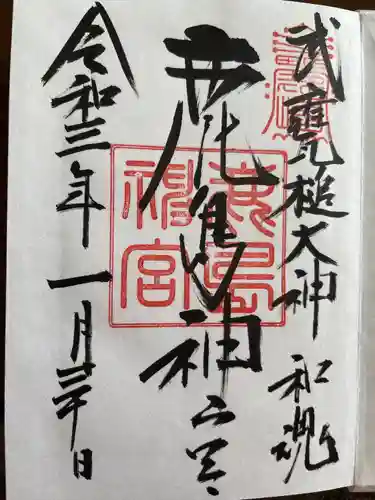 武甕槌大神 和魂
鹿島神宮
令和三年一月三十日
鹿島神宮